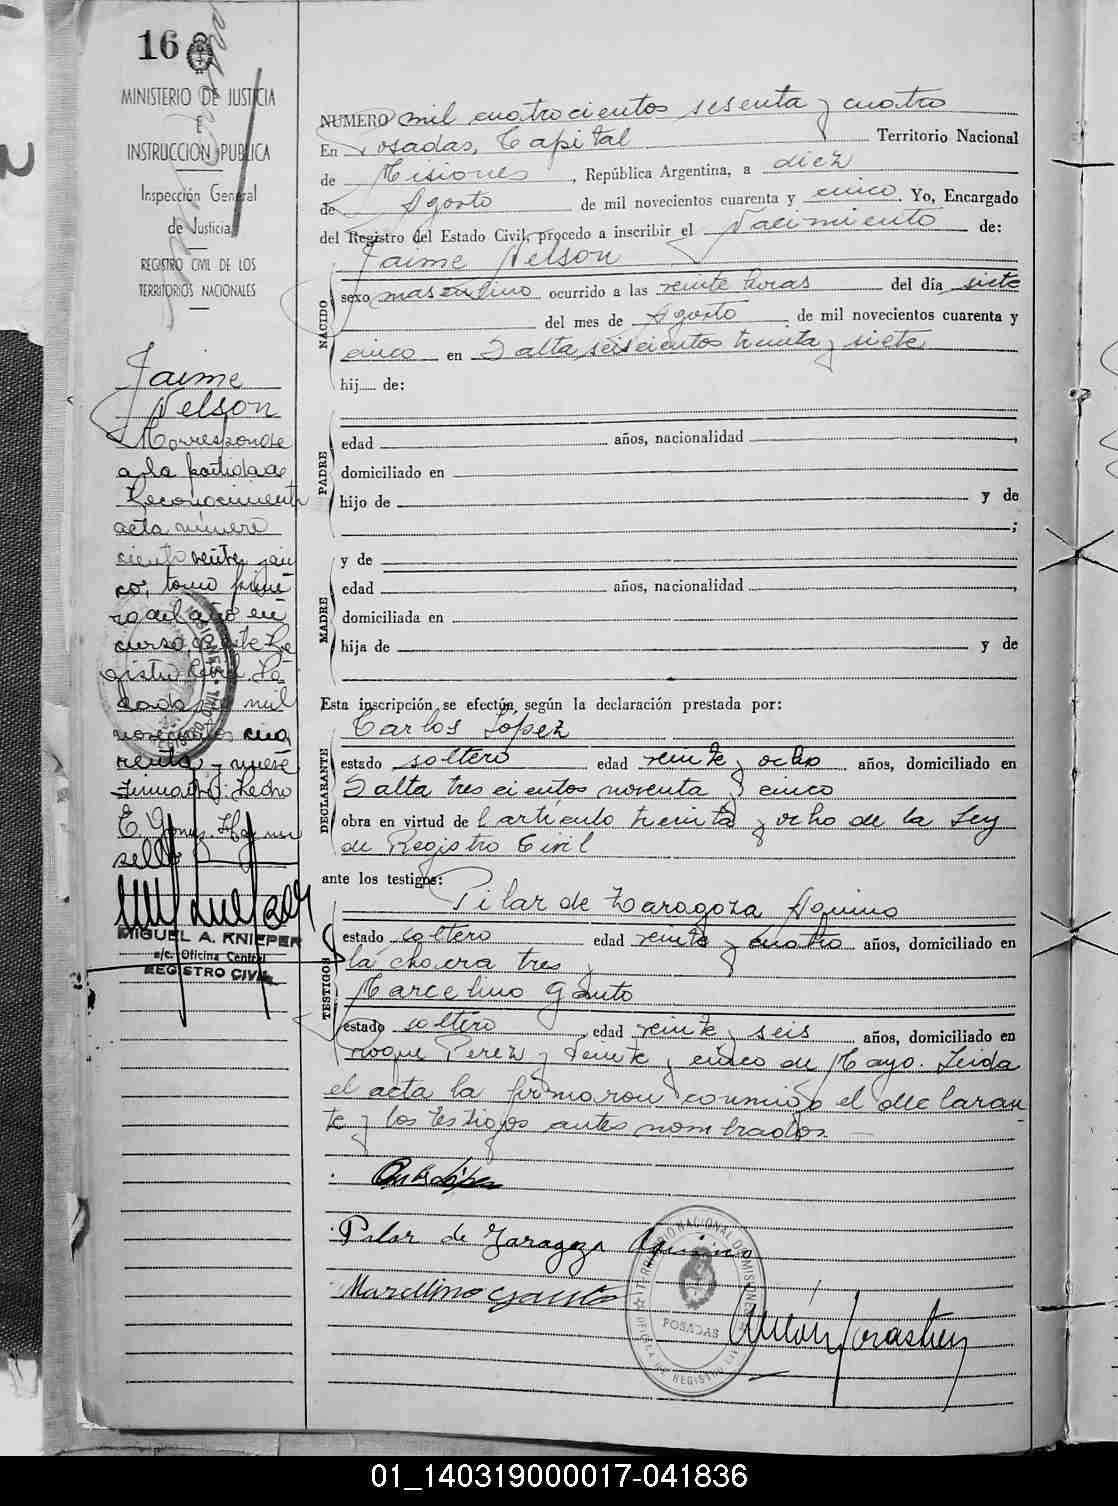 16
MINISTERIO DE JUSTICIA
E
INSTRUCCION PUBLICA
Inspección General
de Justicia
REGISTRO CIVIL DE LOS
TERRITORIOS NACIONALES
Jaime
Nelson
Corresponde
a la partida de
Reconocimiento
acta número
ciento veinte y cin
co, tomo prime
ro del año en
curso de este Re
gistro Civil. Po
sadas mil
novecientos cua
renta y nueve
Firmado: Pedro
E. Hay un
sello
MIGUEL A. KNIEPER
a/c. Oficina Central
REGISTRO CIVIL
NUMERO mil cuatrocientos sesenta y cuatro
En Posadas, Capital Territorio Nacional
de Misiones, República Argentina, a diez
de Agosto de mil novecientos cuarenta y cinco. Yo, Encargado
del Registro del Estado Civil, procedo a inscribir el Nacimiento de:
Jaime Nelson
NACIDO
sexo masculino ocurrido a las veinte horas del día siete
del mes de Agosto de mil novecientos cuarenta y
cinco en Salta seiscientos treinta y siete
hij de:
PADRE
edad años, nacionalidad ,
domiciliado en
hijo de y de
;
MADRE
y de
edad años, nacionalidad ,
domiciliada en
hija de y de
Esta inscripción se efectúa, según la declaración prestada por:
Carlos López
DECLARANTE
estado soltero edad veinte y ocho años, domiciliado en
Salta trescientos noventa y cinco
obra en virtud de l artículo treinta y ocho de la Ley
de Registro Civil
ante los testigos:
Pilar de Zaragoza Aquino
TESTIGOS
estado soltero edad veinte y cuatro años, domiciliado en
la chacra tres y
Marcelino Gauto
estado soltero, edad veinte y seis años, domiciliado en
Roque Perez y Veinte y cinco de Mayo. Leida
el acta la firmaron conmigo el declaran
te y los testigos antes nombrados. —
Pilar de Zaragoza Aquino
Marcelino Gauto
TERRITORIO NACIONAL DE MISIONES
POSADAS
OFICINA DE REGISTRO CIVIL
01_140319000017-041836